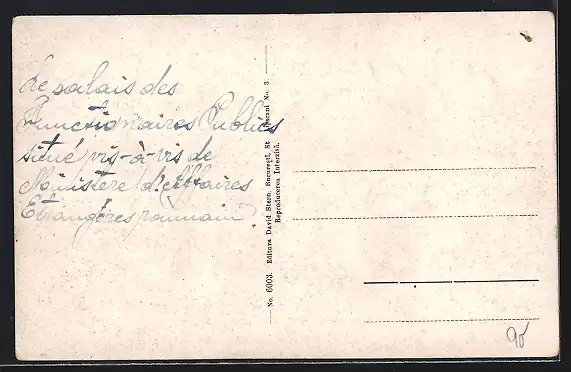 Le palais des
Functionaires Publics
situé vis-à-vis de
Ministere d'Affaires
Etrangéres roumain
No. 6003. Editura David Stern, Bucureşti, St. No. 3
Reproducerea Interzisă.
90